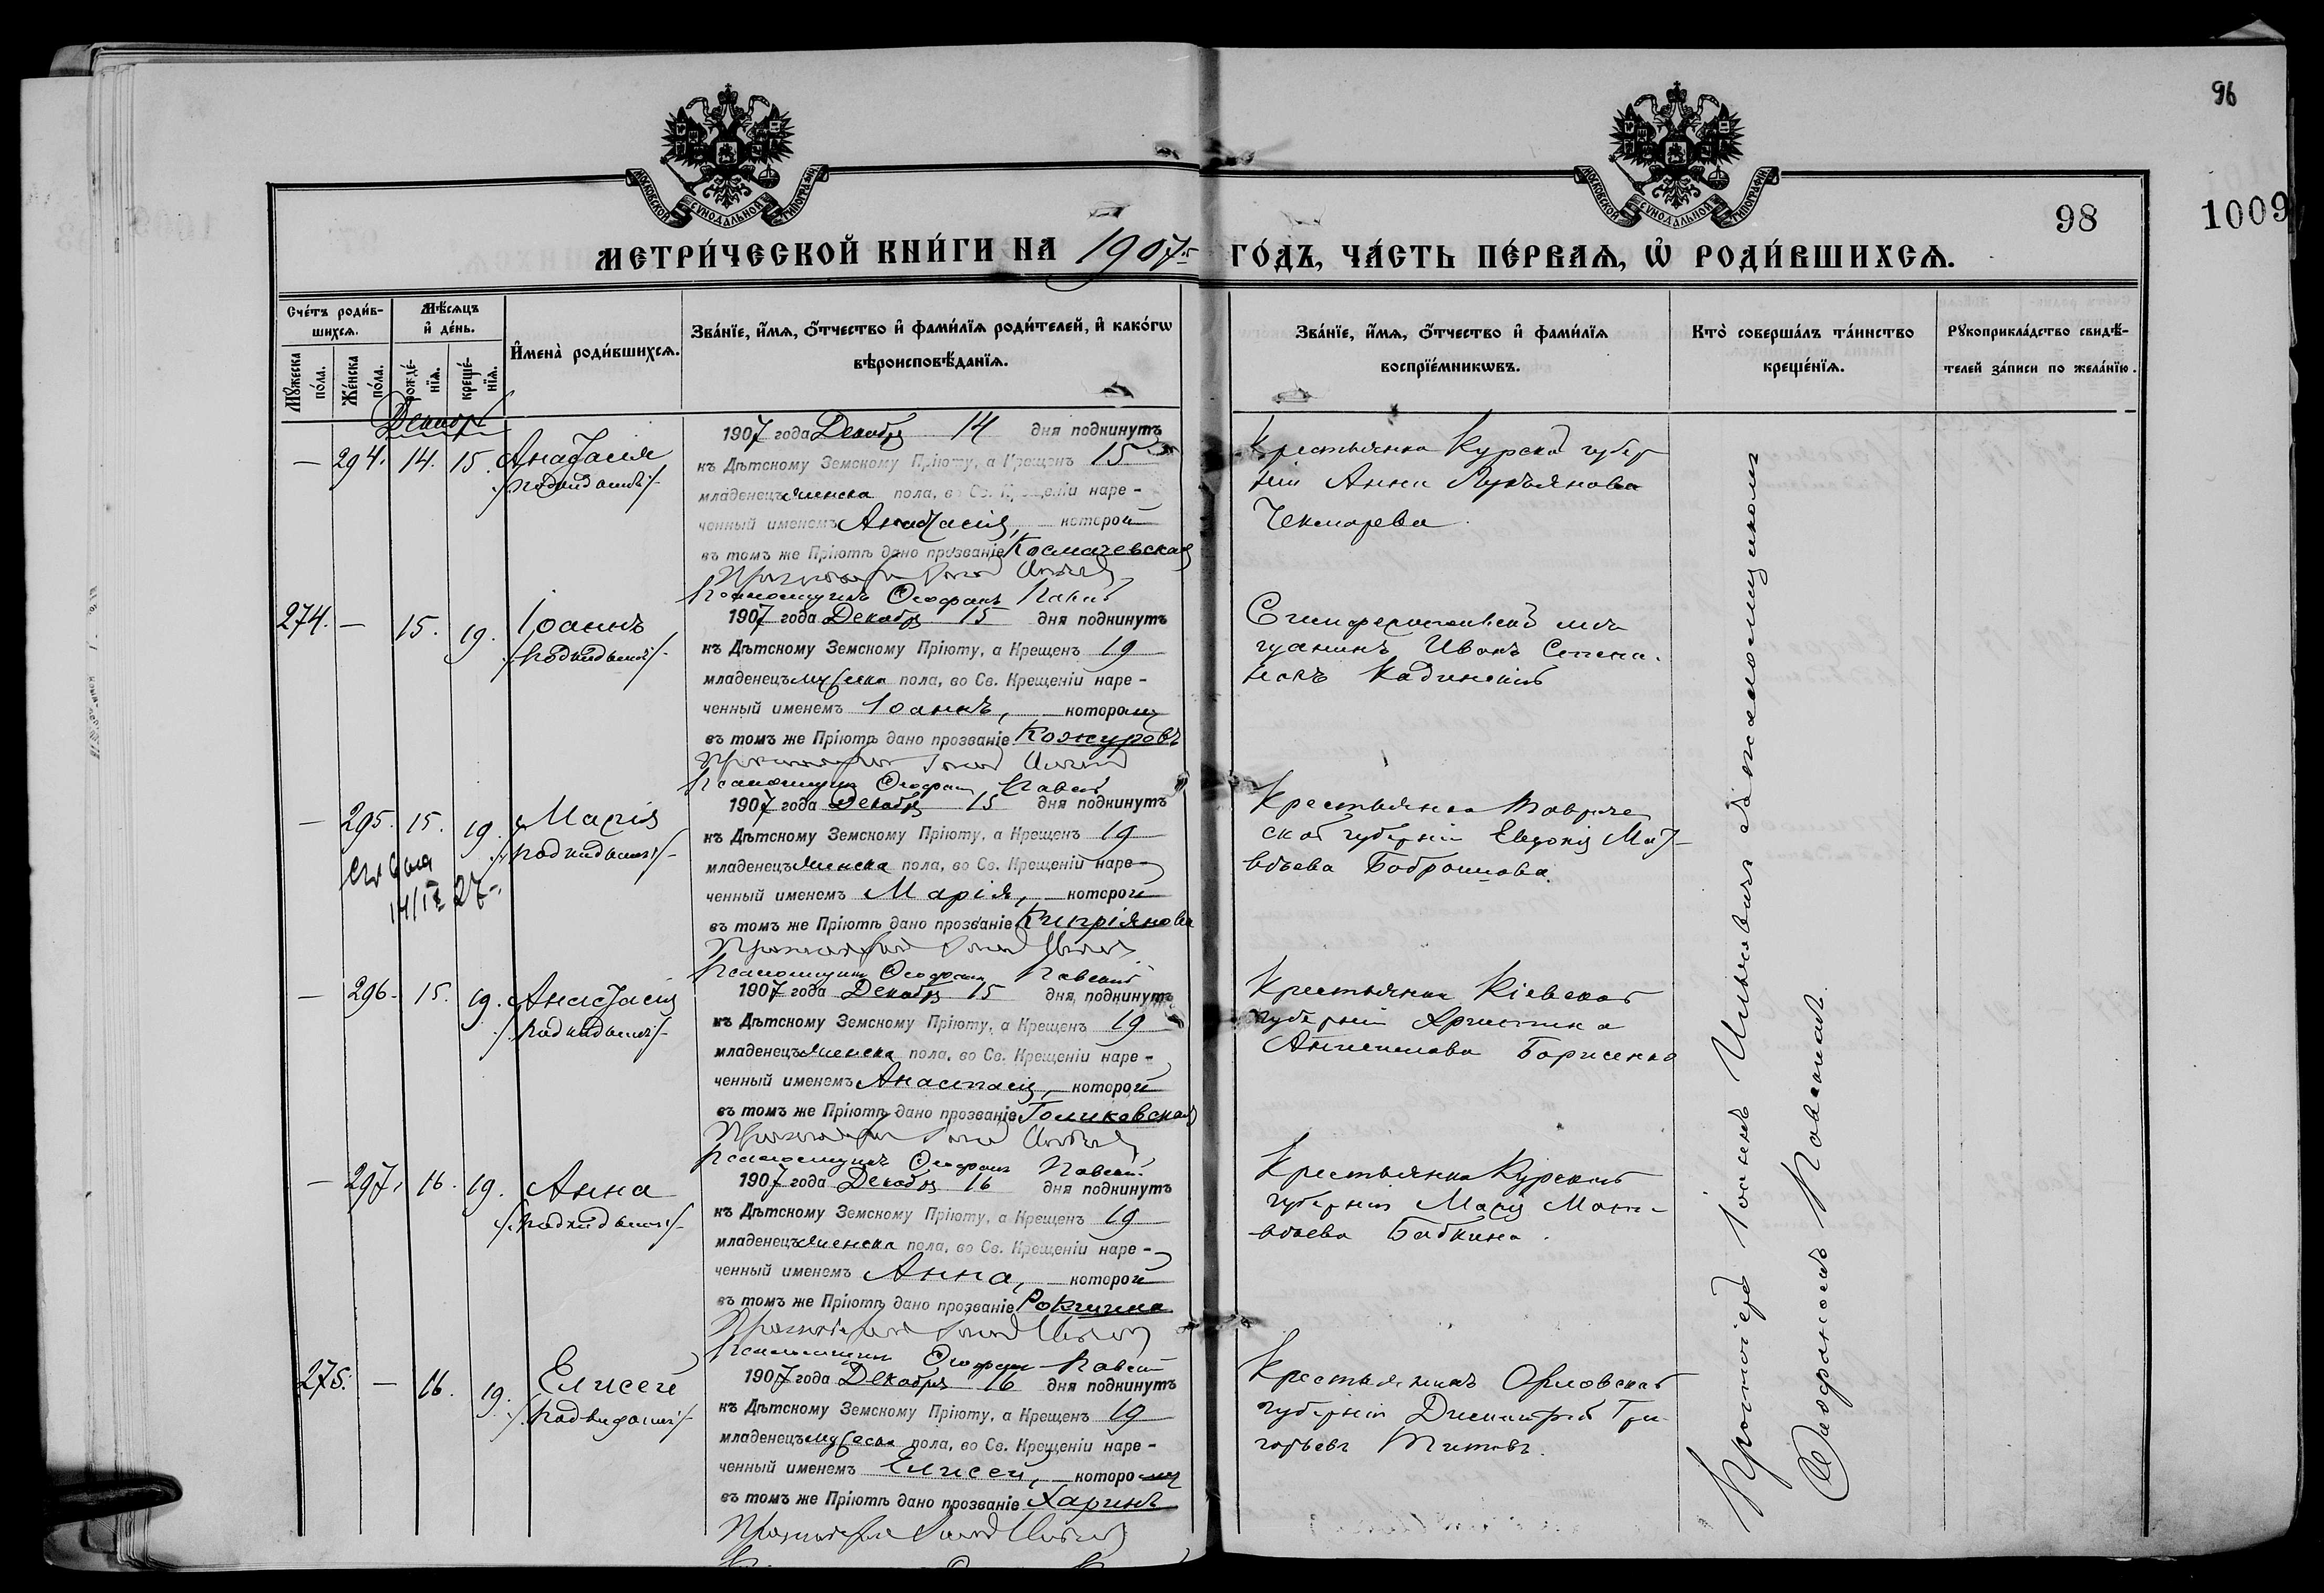 96
98
1009
МОСКОВСКОЙ СѴНОДАЛЬНОЙ ТИПОГРАФІИ
МОСКОВСКОЙ СѴНОДАЛЬНОЙ ТИПОГРАФІИ
МЕТРИ́ЧЕСКОЙ КНИ́ГИ НА 1907 ГО́ДЪ, ЧА́СТЬ ПЕ́РВАЯ, Ѽ РОДИ́ВШИХСЯ.
Сче́тъ роди́в-
шихся.
Мѣ́сяцъ
и҆ де́нь.
Мꙋ́жеска
по́ла.
Же́нска
по́ла.
рожде́-
нїя.
креще́-
нїя.
И҆мена̀ роди́вшихся.
Зва́нїе, и҆́мя, ѻ҆́тчество и҆ фами́лїя роди́телей, и҆ како́гѡ
вѣроисповѣ́данїя.
Зва́нїе, и҆́мя, ѻ҆́тчество и҆ фами́лїя
воспрїе́мникѡвъ.
Кто̀ соверша́лъ та́инство
креще́нїя.
Рꙋкоприкла́дство свидѣ́-
телей за́писи по жела́нїю.
Декабрь
— 294. 14. 15. Анаѳасія
/подкидышъ/
1907 года Декабря 14 дня подкинутъ
къ Дѣтскому Земскому Пріюту, а Крещенъ 15
младенецъ женска пола, во Св. Крещеніи наре-
ченный именемъ Анаѳасія, которой
въ томъ же Пріютѣ дано прозваніе Космачевская
Псаломщикъ Ѳеофанъ
Крестьянка Курской губер
ніи Анна Лукьянова
Чекмарева
274. — 15. 19. Іоаннъ
/подкидышъ/
1907 года Декабря 15 дня подкинутъ
къ Дѣтскому Земскому Пріюту, а Крещенъ 19
младенецъ мужеска пола, во Св. Крещеніи наре-
ченный именемъ Іоаннъ, которому
въ томъ же Пріютѣ дано прозваніе Кожуровъ
Псаломщикъ Ѳеофанъ
Симферопольскій мѣ
щанинъ Иванъ Степа
новъ Кадинскій
— 295. 15. 19. Марія
/подкидышъ/
27
1907 года Декабря 15 дня подкинутъ
къ Дѣтскому Земскому Пріюту, а Крещенъ 19
младенецъ женска пола, во Св. Крещеніи наре-
ченный именемъ Марія, которой
въ томъ же Пріютѣ дано прозваніе Кипріянова
Псаломщикъ Ѳеофанъ Павскій
Крестьянка Тавриче
ской губерніи Евдокія Маѳ-
вѣева
— 296. 15. 19. Анаѳасія
/подкидышъ/
1907 года Декабря 15 дня подкинутъ
къ Дѣтскому Земскому Пріюту, а Крещенъ 19
младенецъ женска пола, во Св. Крещеніи наре-
ченный именемъ Анастасія, которой
въ томъ же Пріютѣ дано прозваніе Голиковская
Псаломщикъ Ѳеофанъ Павскій
Крестьянка Кіевской
губерніи Христина
Борисенко
— 297. 16. 19. Анна
/подкидышъ/
1907 года Декабря 16 дня подкинутъ
къ Дѣтскому Земскому Пріюту, а Крещенъ 19
младенецъ женска пола, во Св. Крещеніи наре-
ченный именемъ Анна, которой
въ томъ же Пріютѣ дано прозваніе
Псаломщикъ Ѳеофанъ
Крестьянка Курской
губерніи Марія Матѳ-
вѣева Бабкина.
275. — 16. 19. Елисей
/подкидышъ/
1907 года Декабря 16 дня подкинутъ
къ Дѣтскому Земскому Пріюту, а Крещенъ 19
младенецъ мужеска пола, во Св. Крещеніи наре-
ченный именемъ Елисей, которому
въ томъ же Пріютѣ дано прозваніе Харинъ
Крестьянинъ Орловской
губерніи Димитрій Гри-
горьевъ Титовъ.
Протоіерей Іоаннъ съ псаломщикомъ
Ѳеофаномъ Павскимъ.